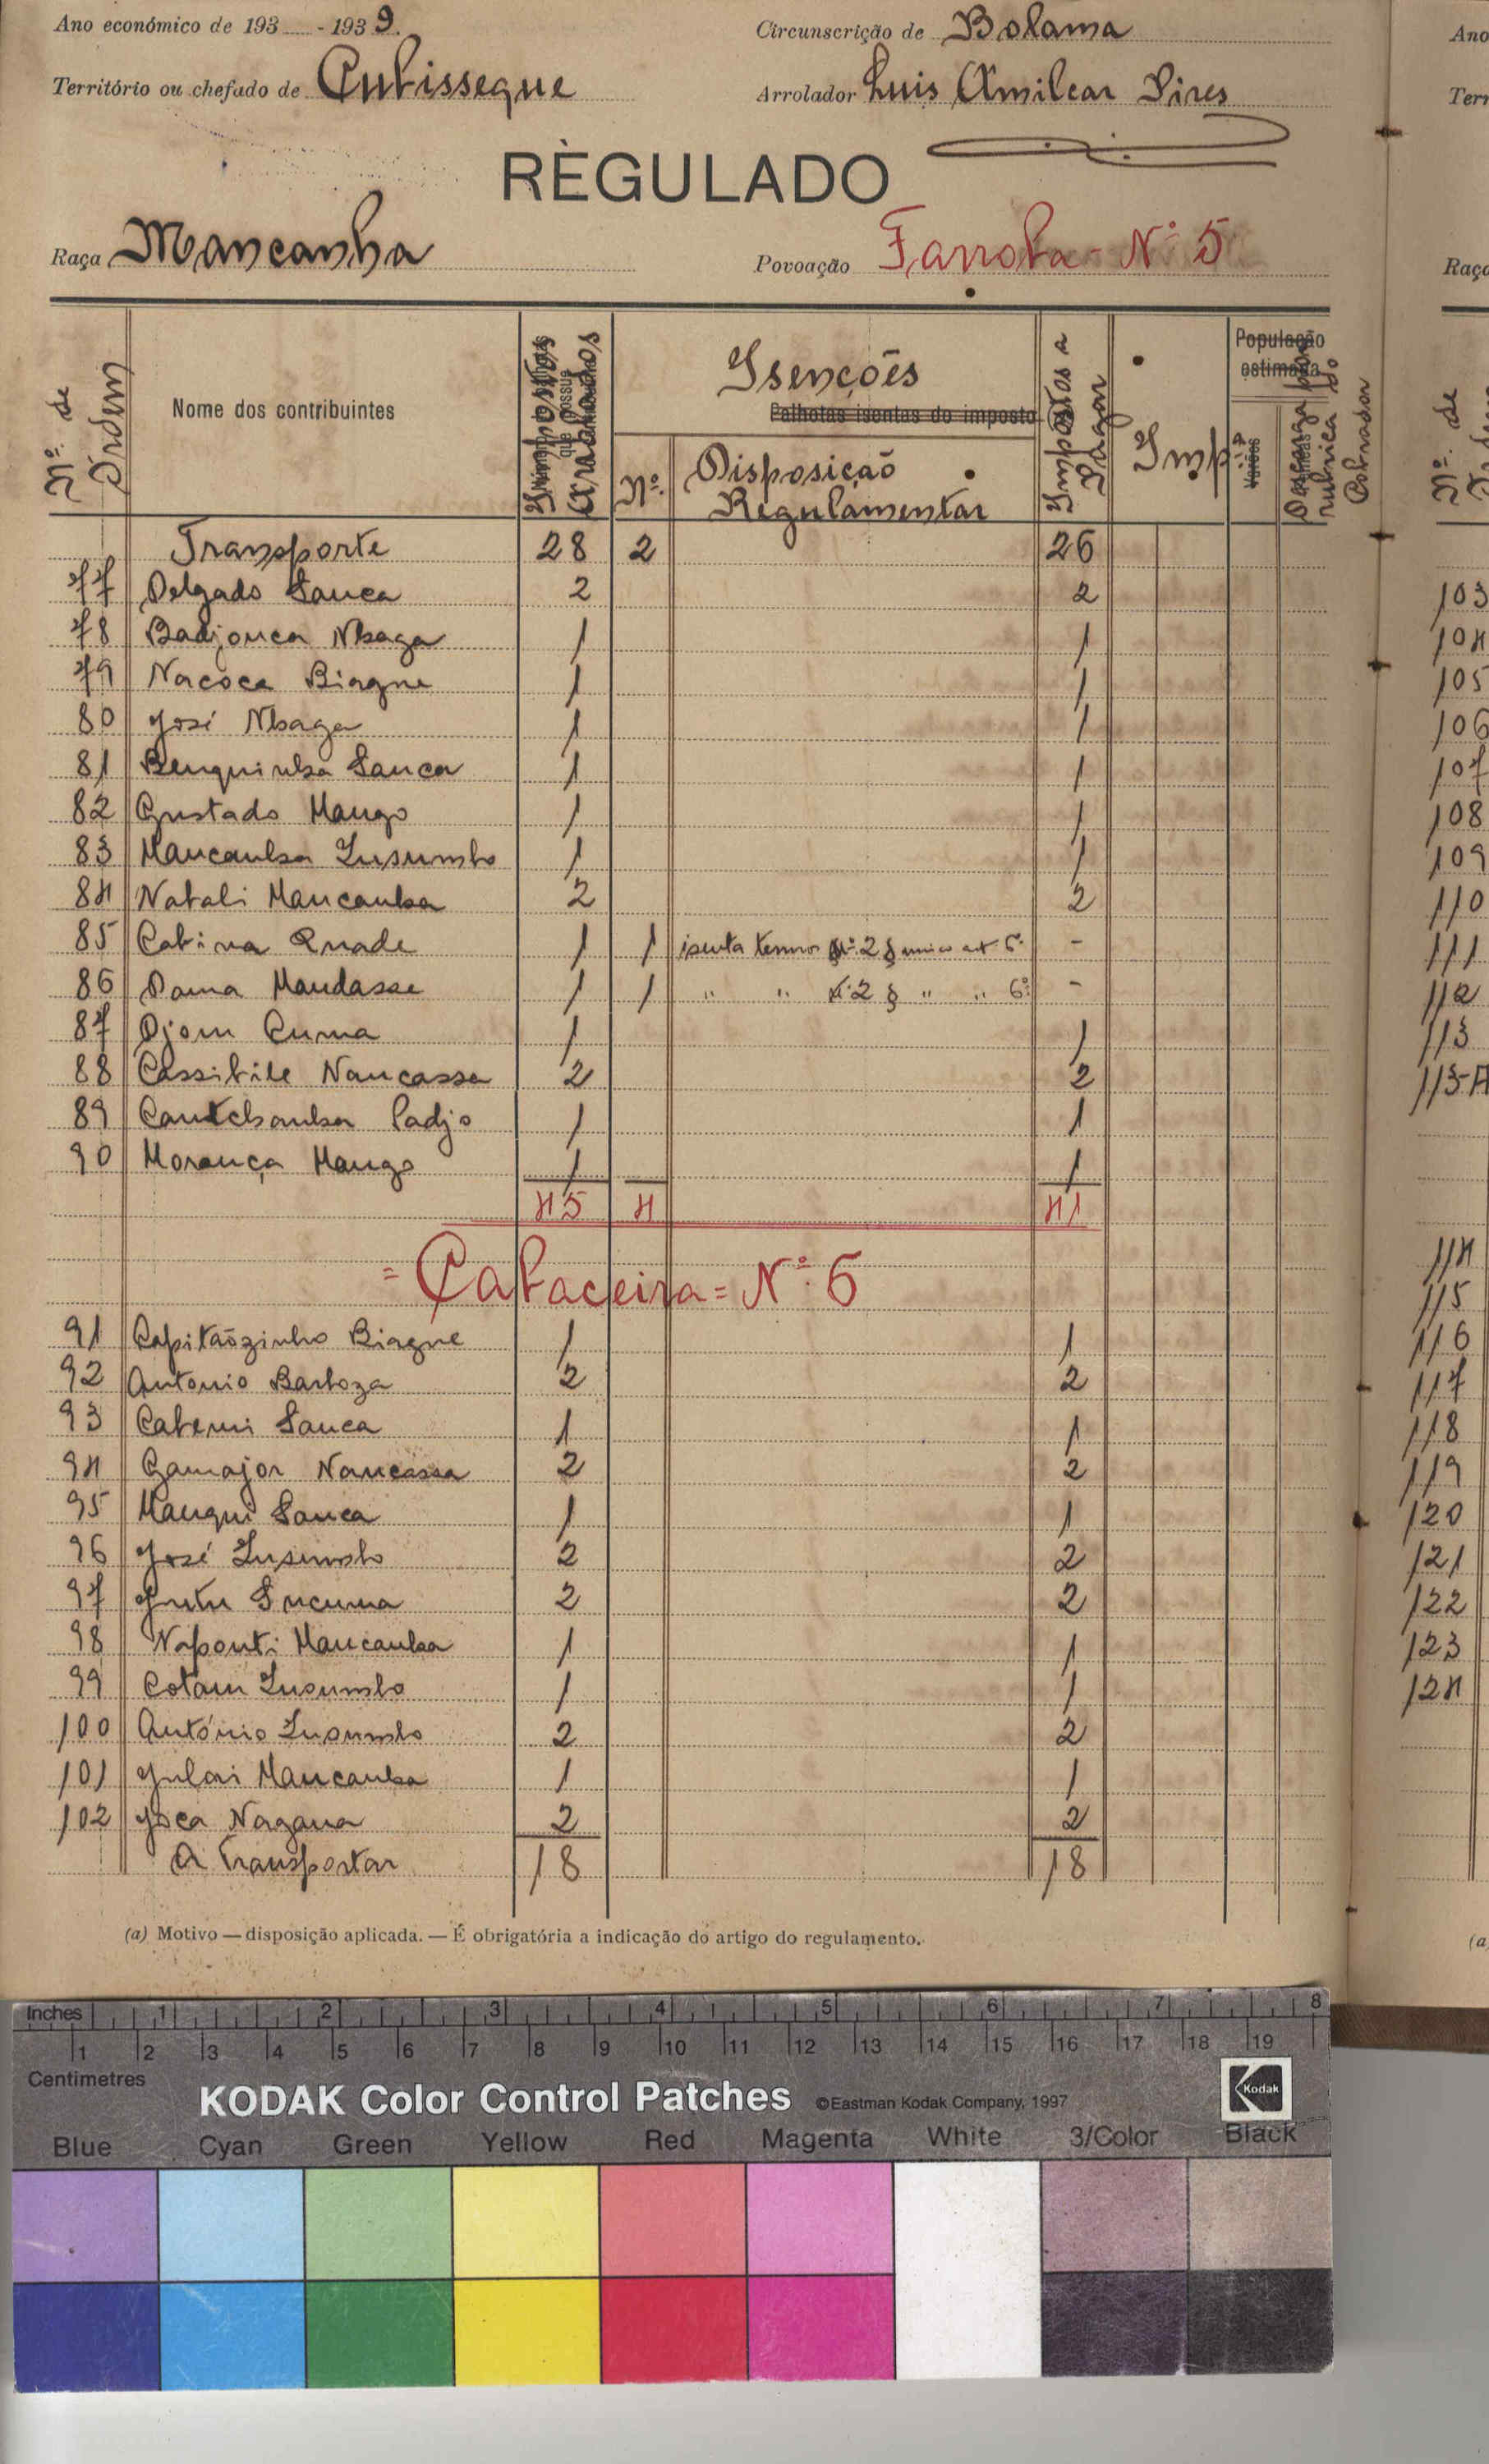 Ano económico de 193 - 1939.
Circunscrição de Bolama
Território ou chefado de Cutissegue
Arrolador Luis Amilcar Pires
RÈGULADO
Raça Mancanha
Povoação Farroba - Nº 5
Nº. de Ordem
Nome dos contribuintes
Impostos Arrolados
Isenções
Palhotas isentas do imposto
Nº.
Disposição Regulamentar
Impostos a Pagar
Imp.
População estimada
Descarga rubrica do Cobrador
Transporte 28 2 26
77 Delgado Sanca 2 2
78 Badjonca Nhaga 1 1
79 Nacoca Biague 1 1
80 José Nhaga 1 1
81 Benquinha Sanca 1 1
82 Gustado Mango 1 1
83 Mancanha Insumbo 1 1
84 Natali Mancanha 2 2
85 Catina Quade 1 1 isenta termos Nº. 2 § unico art. 6º -
86 Dama Mandasse 1 1 " " Nº. 2 § " " 6º. -
87 Djom Cuma 1 1
88 Cassibile Nancassa 2 2
89 Cantchanha Cadjo 1 1
90 Morança Mango 1 1
45 4 41
= Cabaceira = Nº. 6
91 Capitãozinho Biague 1 1
92 Antonio Barboza 2 2
93 Catemi Sanca 1 1
94 Gamajor Nancassa 2 2
95 Manqui Sanca 1 1
96 José Insumbo 2 2
97 Jutu Sucuma 2 2
98 Naponti Mancanha 1 1
99 Cotam Insumbo 1 1
100 António Insumbo 2 2
101 Julai Mancanha 1 1
102 Joca Nagana 2 2
A Transportar 18 18
(a) Motivo — disposição aplicada. — É obrigatória a indicação do artigo do regulamento.
Ano
Terr
Raça
Nº. de
103
104
105
106
107
108
109
110
111
112
113
113-A
114
115
116
117
118
119
120
121
122
123
124
(a
Inches 1 2 3 4 5 6 7 8
1 2 3 4 5 6 7 8 9 10 11 12 13 14 15 16 17 18 19
Centimetres
KODAK Color Control Patches ©Eastman Kodak Company, 1997 Kodak
Blue Cyan Green Yellow Red Magenta White 3/Color Black